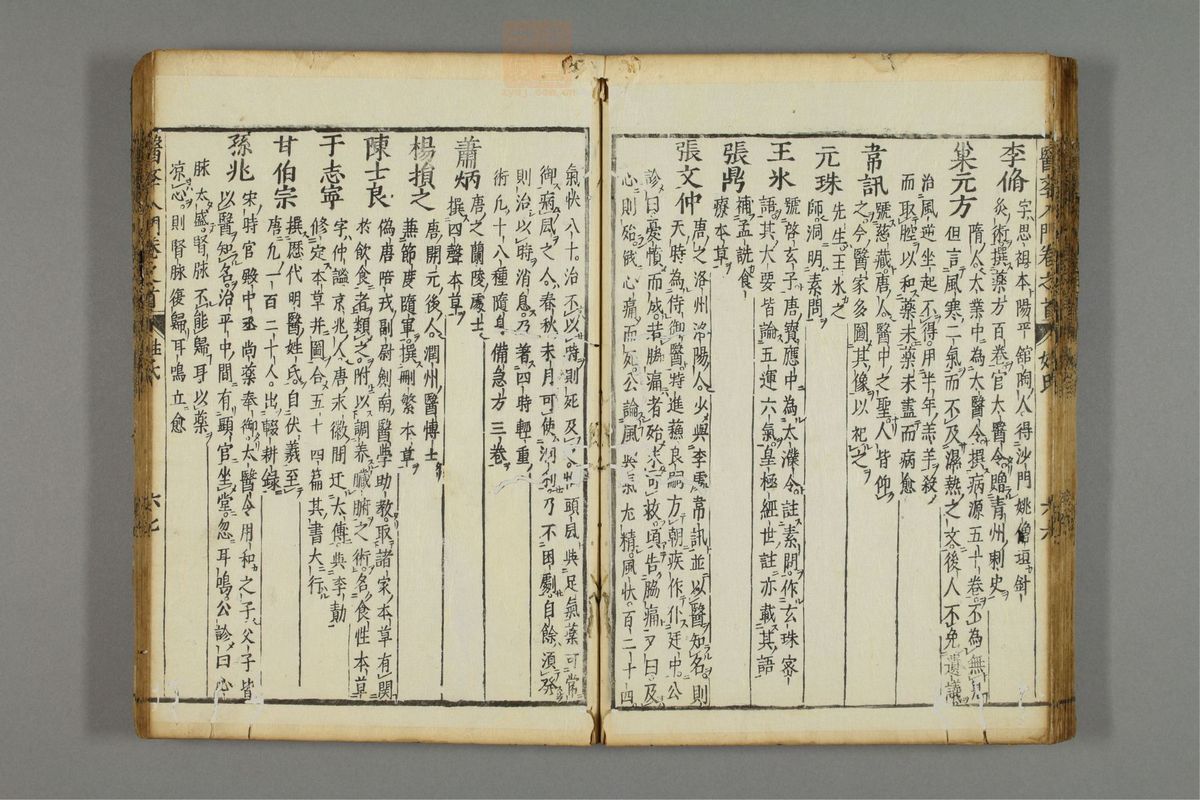 李脩 字思祖本陽平舘陶人得沙門姚僧垣針
灸術撰藥方百卷官太醫令贈青州刺史
巢元方 隋太業中為太醫令撰病源五十卷不為無見
但言風寒二氣而不及濕熱之文後人不免遺議
治風逆坐起不得用半年羔羊殺
而取腔以和藥未藥未盡而病愈
韋訊 號慈藏唐人醫中之聖人皆仰
之今醫家多圖其像以祀之
元珠 先生王氷之
師洞明素問
王氷 號啓玄子唐寶應中為太濮令註素問作玄珠密
語其大要皆論五運六氣皇極經世註亦載其語
張鼎 補孟詵食
療本草
張文仲 唐之洛州洛陽人少與李虔韋訊並以醫知名則
天時為侍御醫特進蘓良嗣方朝疾作仆廷中公
診曰憂憤而成若脇痛者殆未可救頃告脇痛又曰及
心則殆俄心痛而死公論風與氣尤精風伏百二十四
氣伏八十治不以時則死及之惟頭風與足氣藥可常
御病風之人春秋末月可使洞利乃不困劇自餘須發
則治以時消息乃著四時輕重
術凡十八種隨身備急方三卷
蕭炳 唐之蘭陵處士
撰四聲本草
楊損之 唐開元後人潤州醫博士
兼節度隨軍撰刪繁本草
陳士良 偽唐陪戎副尉劍南醫學助教取諸家本草有關
於飲食者類之附以調養臟腑之術名食性本草
于志寧 字仲謐京兆人唐永徽間迁太傅與李勣
修定本草并圖合五十四篇其書大行
甘伯宗 撰歷代明醫姓氏自伏羲至
唐凡一百二十人出輟耕錄
孫兆 宋時官殿中丞尚藥奉御太醫令用和之子父子皆
以醫知名治平中間有顯官坐堂忽耳鳴公診曰心
脉太盛腎脉不能歸耳以藥
凉心則腎脉復歸耳鳴立愈